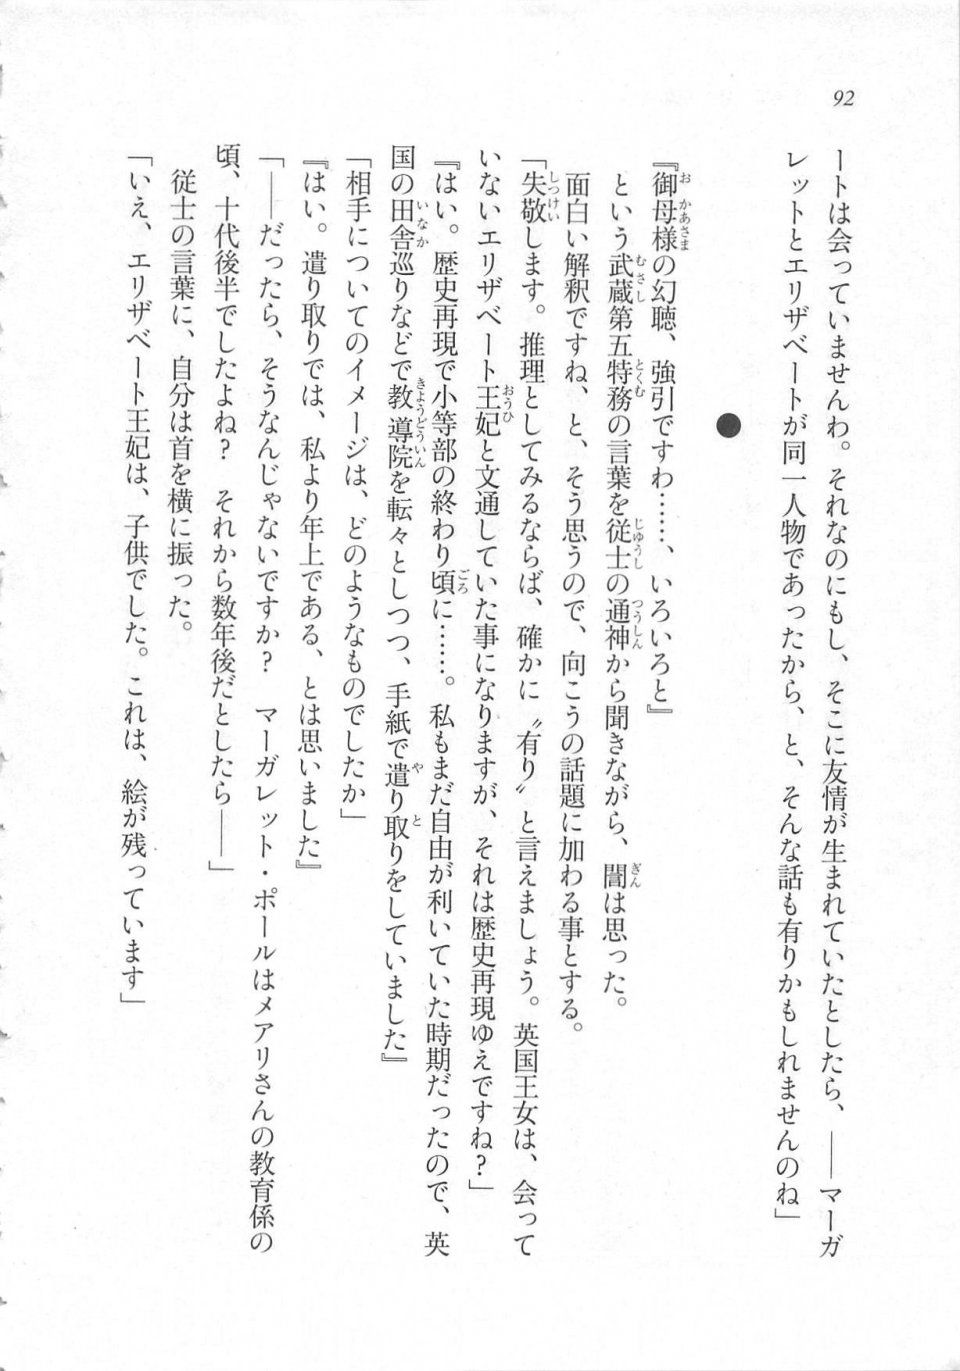 92
ートは会っていませんわ。それなのにもし、そこに友情が生まれていたとしたら、――マーガ
レットとエリザベートが同一人物であったから、と、そんな話も有りかもしれませんのね」
●
『御母様の幻聴、強引ですわ……、いろいろと』
という武蔵第五特務の言葉を従士の通神から聞きながら、誾は思った。
面白い解釈ですね、と、そう思うので、向こうの話題に加わる事とする。
「失敬します。推理としてみるならば、確かに〝有り〟と言えましょう。英国王女は、会って
いないエリザベート王妃と文通していた事になりますが、それは歴史再現ゆえですね？」
『はい。歴史再現で小等部の終わり頃に……。私もまだ自由が利いていた時期だったので、英
国の田舎巡りなどで教導院を転々としつつ、手紙で遣り取りをしていました』
「相手についてのイメージは、どのようなものでしたか」
『はい。遣り取りでは、私より年上である、とは思いました』
「――だったら、そうなんじゃないですか？　マーガレット・ポールはメアリさんの教育係の
頃、十代後半でしたよね？　それから数年後だとしたら――」
従士の言葉に、自分は首を横に振った。
「いえ、エリザベート王妃は、子供でした。これは、絵が残っています」